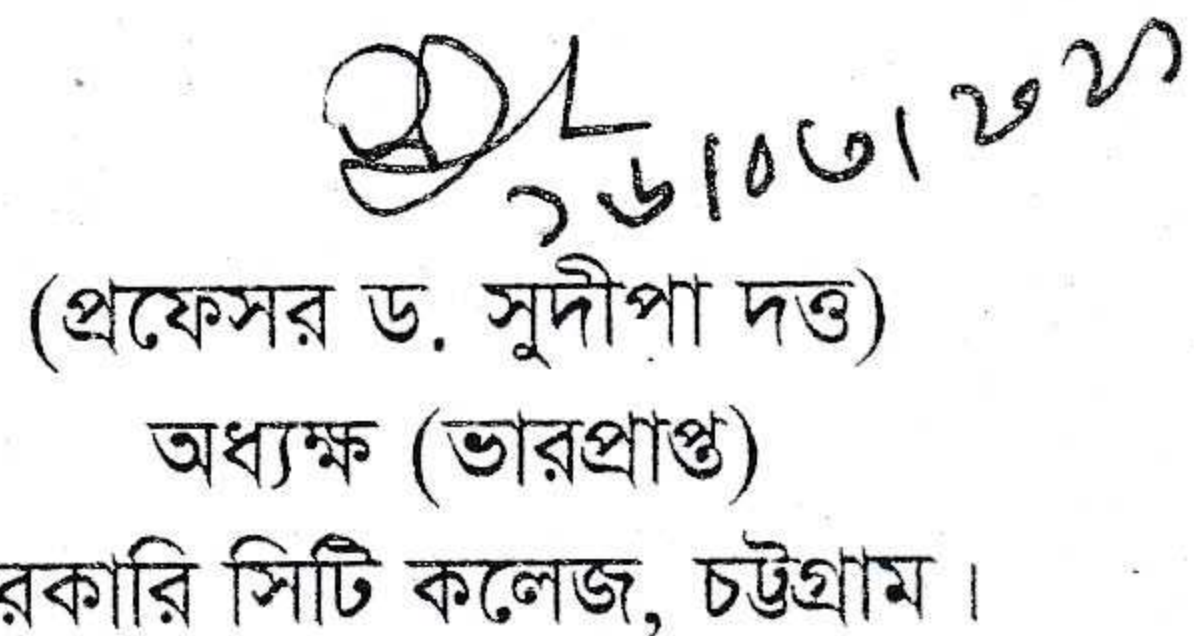 ১৬।০৩।২২
(প্রফেসর ড. সুদীপা দত্ত)
অধ্যক্ষ (ভারপ্রাপ্ত)
রকারি সিটি কলেজ, চট্টগ্রাম।